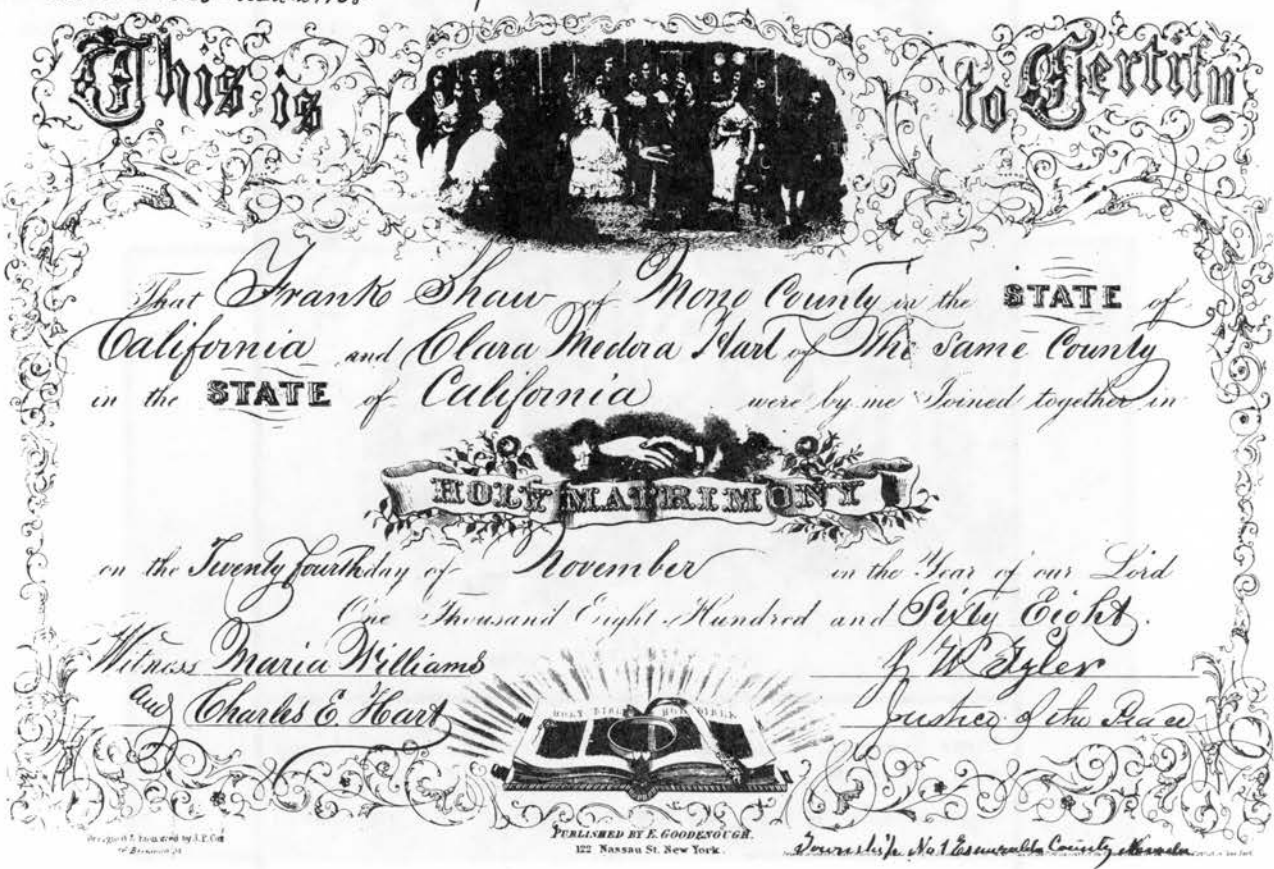 This is to Certify
That Frank Shaw of Mono County in the STATE of
California and Clara Medora Hart of The Same County
in the STATE of California were by me Joined together in
HOLY MATRIMONY
on the Twenty fourth day of November in the Year of our Lord
One Thousand Eight Hundred and Sixty Eight.
Witness Maria Williams
and Charles E. Hart
J W Tyler
Justice of the Peace
HOLY BIBLE HOLY BIBLE
PUBLISHED BY E. GOODENOUGH.
122 Nassau St. New York.
Township No 1 Esmeralda County Nevada